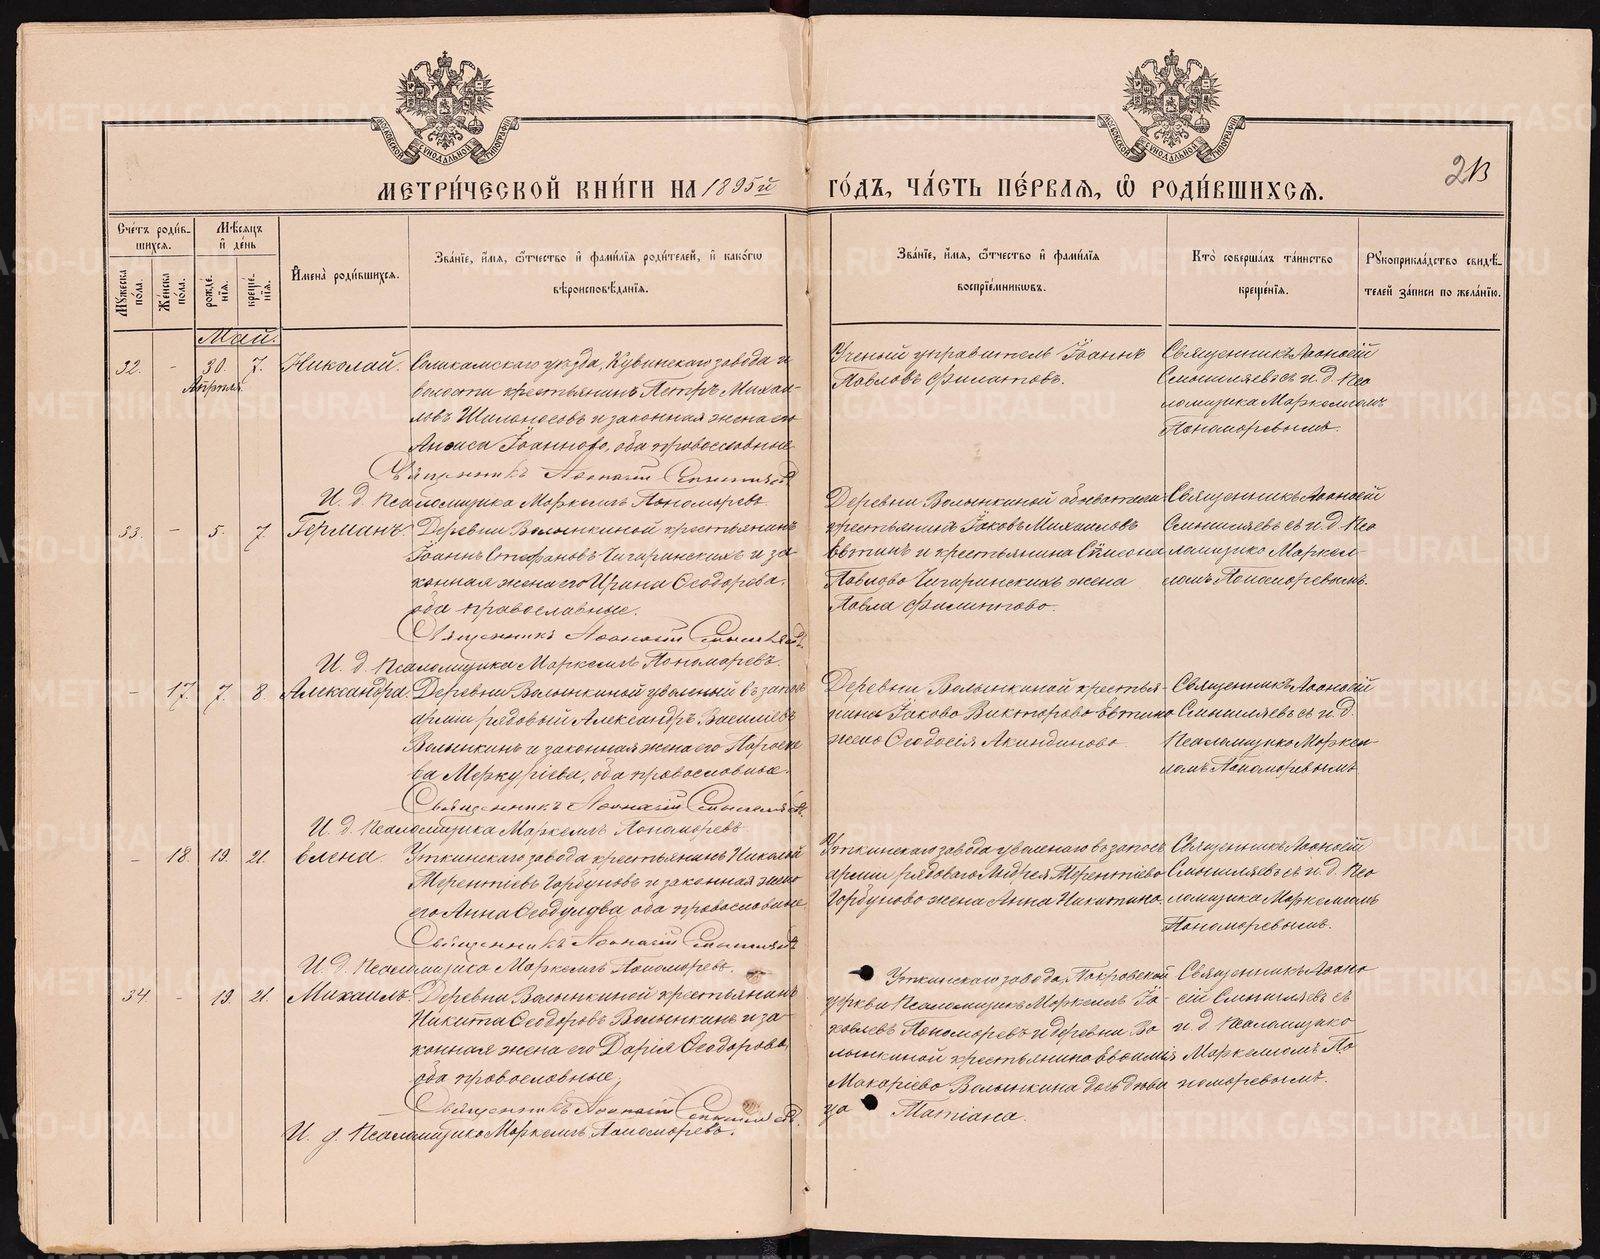 МЕТРИ́ЧЕСКОЙ КНИ́ГИ НА 1895й ГО́ДЪ, ЧА́СТЬ ПЕ́РВАЯ, Ѽ РОДИ́ВШИХСЯ.
Сче́тъ роди́вшихся.
Мѣ́сяцъ и де́нь
Му́жеска по́ла.
Же́нска по́ла.
рожде́нїя.
креще́нїя.
И҆мена̀ роди́вшихся.
Зва́нїе, и҆́мя, ѻ҆́тчество и҆ фамилїя роди́телей, и҆ како́гѡ
вѣроисповѣ́данїя.
Зва́нїе, и҆́мя, ѻ҆́тчество и҆ фами́лїя
воспрїе́мникѡвъ.
Кто̀ соверша́лъ та́инство
креще́нїя.
Рꙋкоприкла́дство свидѣ́-
телей за́писи по жела́нїю.
Май.
32. - 30. Апрѣля 7. Николай.
Соликамскаго уѣзда, Кувинскаго завода и
волости крестьянинъ Петръ Михаи-
ловъ Шилоносовъ и законная жена его
Іоаннова, оба православные
Священникъ
И. д. Псаломщика Маркеллъ Пономаревъ.
Ученый управитель Іоаннъ
Павловъ Филатовъ.
Священникъ Аѳонасій
Смышляевъ съ и. д. Пса
ломщика Маркелломъ
Пономаревымъ.
33. - 5. 7. Германъ.
Деревни Волынкиной крестьянинъ
Іоаннъ Стефановъ Чигаринскихъ и за-
конная жена его Ирина Ѳеодорова,
оба православные.
Священникъ
И. д. Псаломщика Маркеллъ Пономаревъ.
Деревни Волынкиной
крестьянинъ Іаковъ Михаиловъ
и крестьянина Сѵмеона
Павлова Чигаринскихъ жена
Павла Филиппова.
Священникъ Аѳонасій
Смышляевъ съ и. д. Пса
ломщика Маркел-
ломъ Пономаревымъ.
- 17. 7. 8. Александра.
Деревни Волынкиной уволенный въ запасъ
арміи рядовый Александръ Васильевъ
Волынкинъ и законная жена его Параске
ва Меркуріева, оба православные.
Священникъ
И. д. Псаломщика Маркеллъ Пономаревъ
Деревни Волынкиной крестья-
нина Іакова Викторова
жена Ѳеодосія Акиндинова.
Священникъ Аѳонасій
Смышляевъ съ и. д.
Псаломщика Маркел-
ломъ Пономаревымъ
- 18. 19. 21. Елена.
Уткинскаго завода крестьянинъ Николай
Терентіевъ Горбуновъ и законная жена
его Анна оба православные.
Священникъ
И. д. Псаломщика Маркеллъ Пономаревъ.
Уткинскаго завода уволеннаго въ запасъ
арміи рядоваго Андрея Терентіева
Горбунова жена Анна Никитина.
Священникъ Аѳонасій
Смышляевъ съ и. д. Пса
ломщика Маркелломъ
Пономаревымъ.
34 - 19. 21. Михаилъ.
Деревни Волынкиной крестьянинъ
Никита Ѳеодоровъ Волынкинъ и за-
конная жена его Дарія Ѳеодорова,
оба православные,
Священникъ
И. д. Псаломщика Маркеллъ Пономаревъ.
Уткинскаго завода, Покровской
церкви Псаломщикъ Маркеллъ Іа-
ковлевъ Пономаревъ и деревни Во
лынкиной крестьянина Евѳимія
Макаріева Волынкина дочь дѣви
ца Татіана.
Священникъ Аѳона
сій Смышляевъ съ
и. д. Псаломщика
Маркелломъ По
номаревымъ.
METRIKI.GASO-URAL.RU